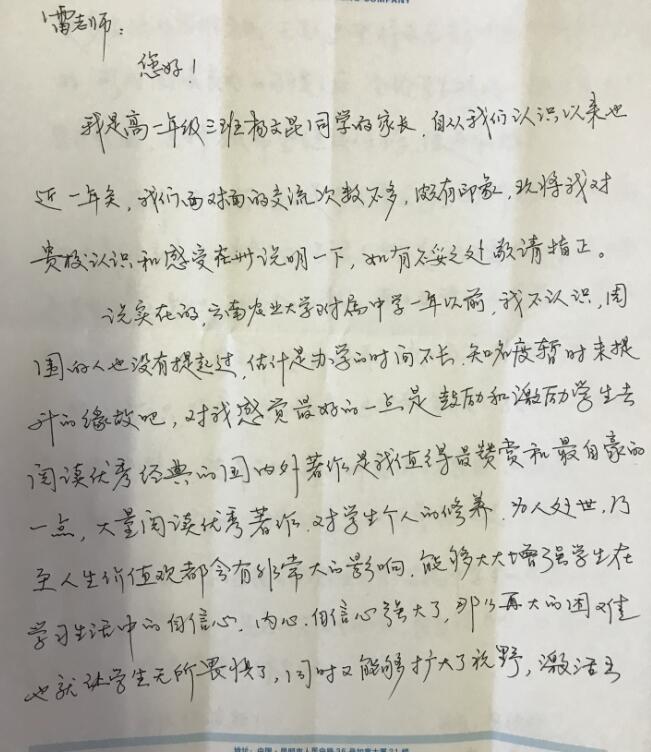 COMPANY
雷老师：
您好！
我是高一年级三班杨文昆同学的家长，自从我们认识以来也
近一年矣，我们面对面的交流次数不多，颇有印象，现将我对
贵校认识和感受在此说明一下，如有不妥之处敬请指正。
说实在的，云南农业大学附属中学一年以前，我不认识，周
围的人也没有提起过，估计是办学的时间不长，知名度暂时未提
升的缘故吧，对我感觉最好的一点是鼓励和激励学生去
阅读优秀经典的国内外著作是我值得最赞赏和最自豪的
一点，大量阅读优秀著作，对学生个人的修养，为人处世，乃
至人生价值观都会有非常大的影响，能够大大增强学生在
学习生活中的自信心，内心、自信心强大了，那么再大的困难
也就让学生无所畏惧了，同时又能够扩大了视野，激活了
地址：中国·昆明市人民中路36号如意大厦21楼